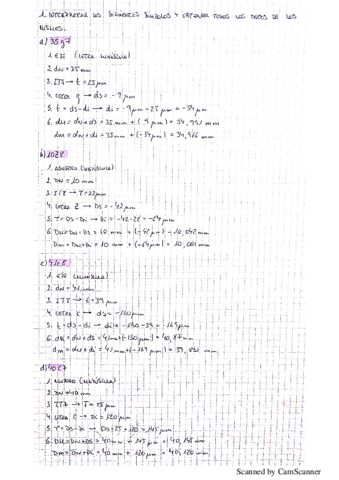 1. INTERPRETAR LOS SIGUIENTES SÍMBOLOS Y OBTENER TODOS LOS DATOS DE LOS
MISMOS.
a) 35 g7
1. EJE (LETRA MINÚSCULA)
2. dN = 35 mm
3. IT7 → t = 25 µm
4. LETRA g → ds = -9 µm
5. t = ds - di → di = -9 µm - 25 µm = -34 µm
6. dM = dN + ds = 35 mm + (-9 µm) = 34,991 mm
dm = dN + di = 35 mm + (-34 µm) = 34,966 mm
b) 10Z8
1. AGUJERO (MAYÚSCULA)
2. DN = 10 mm
3. IT8 → T = 22 µm
4. LETRA Z → Ds = -42 µm
5. T = Ds - Di → Di = -42 - 22 = -64 µm
6. DM = DN + Ds = 10 mm + (-42 µm) = 10,042 mm
Dm = DN + Di = 10 mm + (-64 µm) = 10,064 mm
c) 41c8
1. EJE (MINÚSCULA)
2. dN = 41 mm
3. IT8 → t = 39 µm
4. LETRA c → ds = -130 µm
5. t = ds - di → di = -130 - 39 = -169 µm
6. dM = dN + ds = 41 mm + (-130 µm) = 40,87 mm
dm = dN + di = 41 mm + (-169 µm) = 39,831 mm
d) 40C7
1. AGUJERO (MAYÚSCULA)
2. DN = 40 mm
3. IT7 → T = 25 µm
4. LETRA C → Di = 120 µm
5. T = Ds - Di → Ds = 25 + 120 = 145 µm
6. DM = DN + Ds = 40 mm + 145 µm = 40,145 mm
Dm = DN + Di = 40 mm + 120 µm = 40,120 mm
Scanned by CamScanner